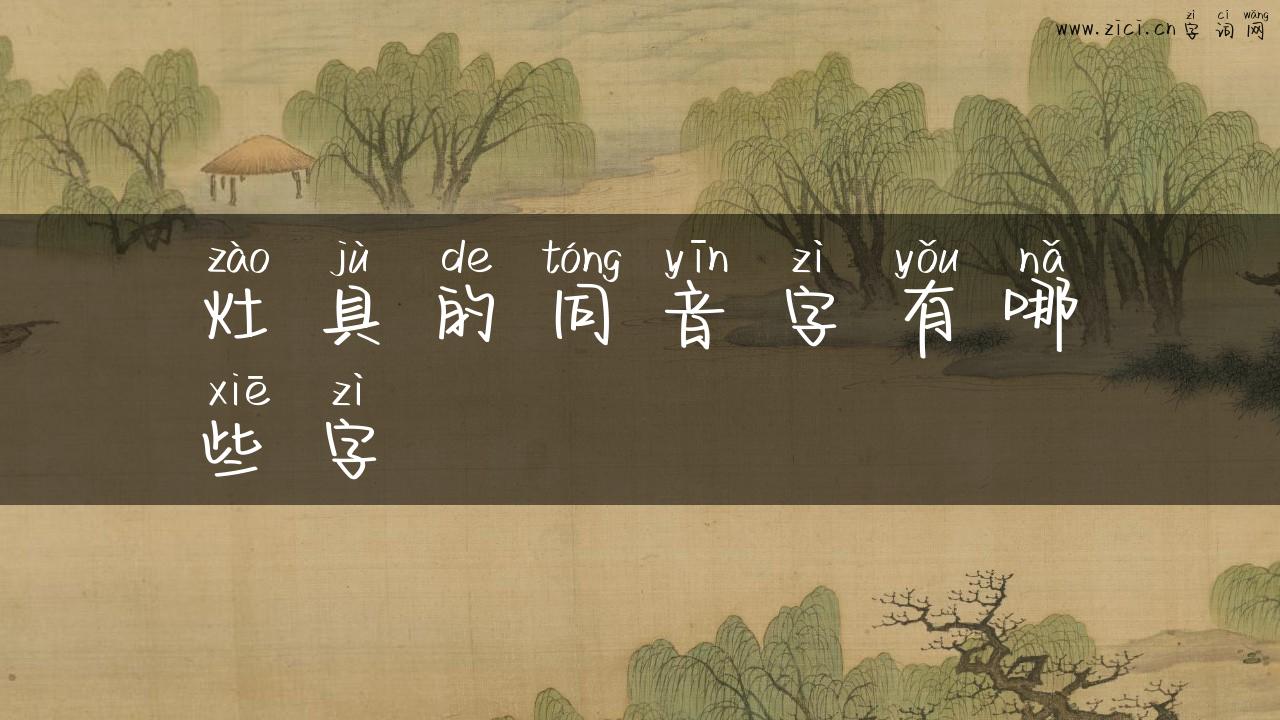 zì cí wǎng
www.zici.cn 字 词 网
zào jù de tóng yīn zì yǒu nǎ
灶 具 的 同 音 字 有 哪
xiē zì
些 字